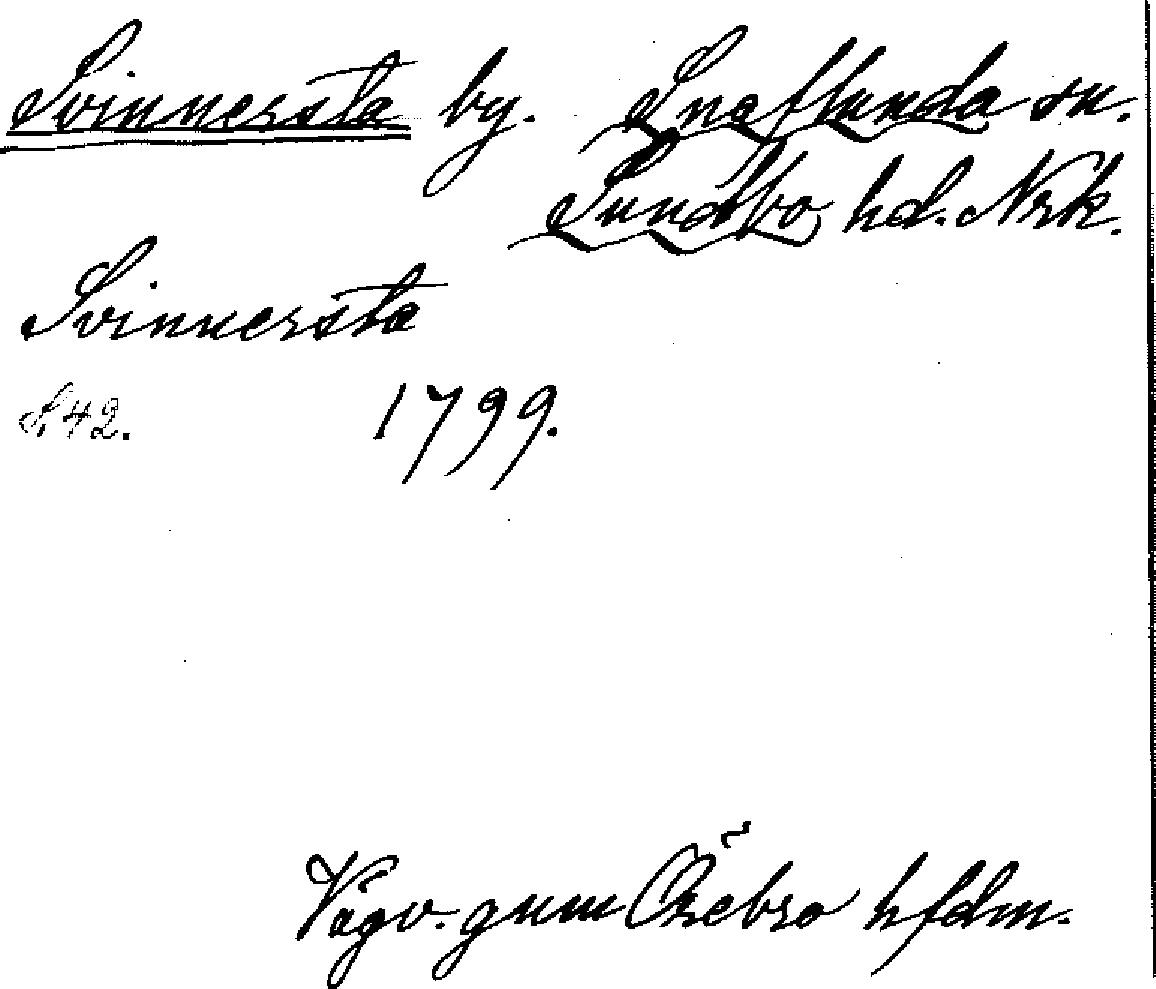 Svinnersta by. Snaflunda sn.
Sundbo hd. Nrk.
Svinnersta
S. 42. 1799.
Vägv. gnm Örebro hfdm.